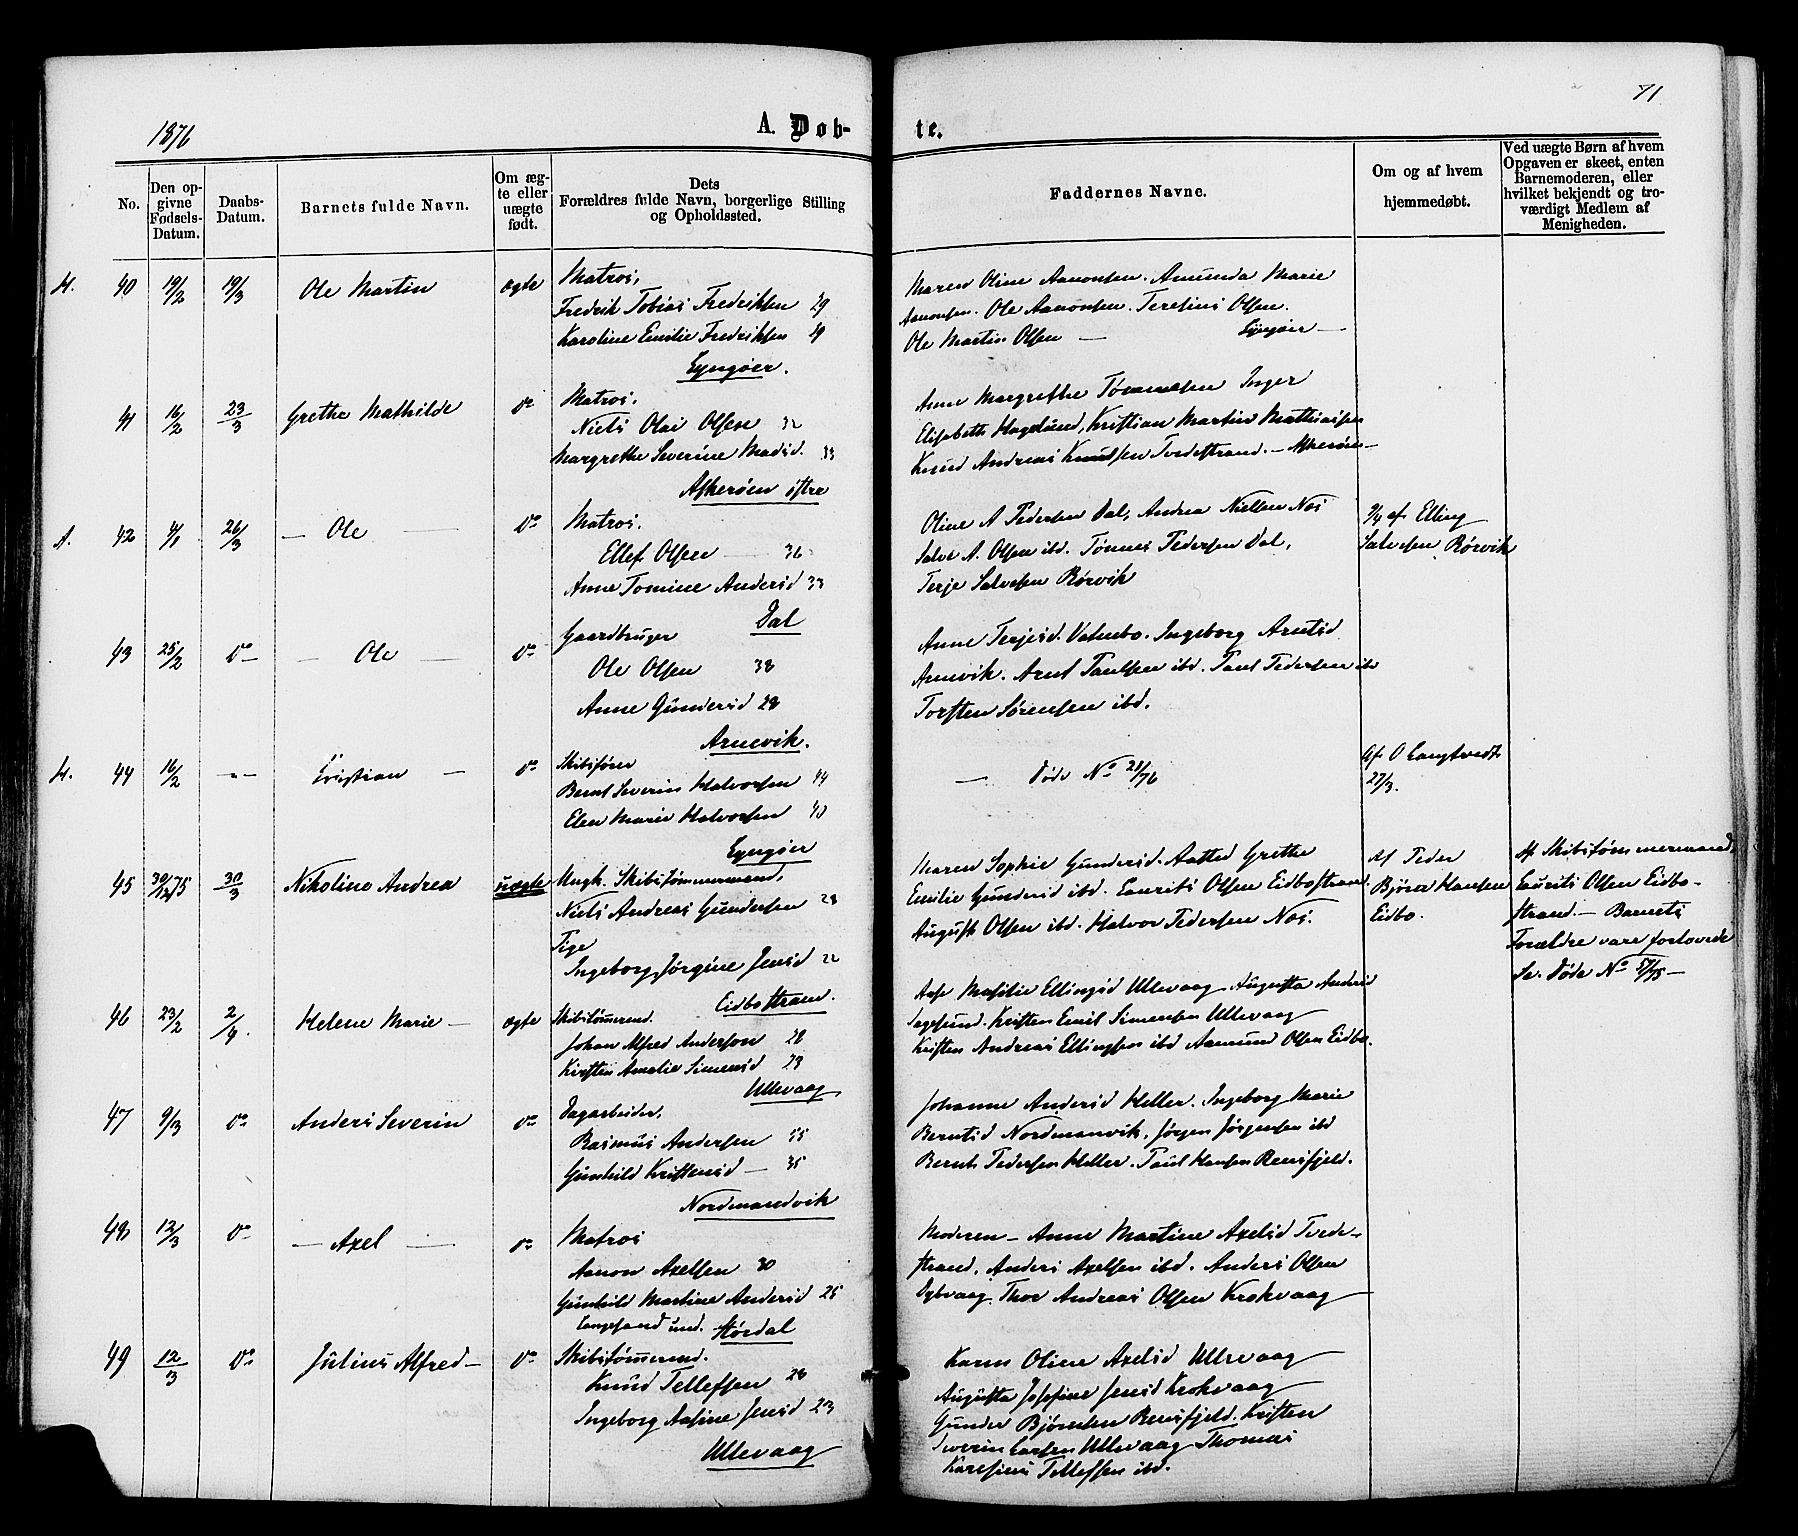 71
1876
A. Døb-
te.
No.
Den op-
givne
Fødsels-
Datum.
Daabs-
Datum.
Barnets fulde Navn.
Om æg-
te eller
uægte
født.
Dets
Forældres fulde Navn, borgerlige Stilling
og Opholdssted.
Faddernes Navne.
Om og af hvem
hjemmedøbt.
Ved uægte Børn af hvem
Opgaven er skeet, enten
Barnemoderen, eller
hvilket bekjendt og tro-
værdigt Medlem af
Menigheden.
40 19/2 19/3 Ole Martin ægte Matros,
Fredrik Tobias Fredriksen 29
Karoline Emilie Fredriksen 29
Lyngøer.
Maren Oline Aanonsen. Amunda Marie
Aanonsen. Ole Aanonsen. Teresius Olsen
Ole Martin Olsen — Lyngøer —
41 16/2 23/3 Grethe Mathilde do Matros.
Niels Olai Olsen 32
Margrethe Severine Madsd. 33
Askerøen østre
Anne Margrethe Tønnesen Inger
Elisabeth Hagelund, Kristian Martin Mathiassen
Knud Andreas Knudsen Tvedestrand. — Askerøen —
42 4/1 26/3 — Ole — do Matros.
Ellef Olsen — 36
Anne Tomine Andersd 33
Dal
Oline A Pedersen Dal, Andrea Nielsen Næs
Salve A. Olsen ibd. Tønnes Pedersen Dal,
Terje Salvesen Rørvik
af Elling
Salvesen Rørvik
43 25/2 do — Ole — do Gaardbruger
Ole Olsen 38
Anne Gundersd 28
Arnevik.
Anne Terjesd. Valenbo. Ingeborg Arntsd
Arnevik. Arnt Paulsen ibd. Paul Pedersen ib
Torsten Sørensen ibd.
44 16/2 — Kristian — do Skibsfører
Bernt Severin Halvorsen 44
Elen Marie Halvorsen 40
Lyngøer
— Døde No 21/76
Af O Langtvedt
27/3.
45 30/12 75 30/3 Nikoline Andrea uægte Ungk. Skibstømmermand,
Niels Andreas Gundersen 28
Pige
Ingeborg Jørgine Jensd 22
Eidbostrand.
Maren Sophie Gundersd. Aasted Grethe
Emilie Gundersd ibd. Laurits Olsen Eidbostrand
August Olsen ibd. Halvor Pedersen Næs.
Af Peder
Bjørn Hansen
Eidbo.
Af Skibstømmermand
Laurits Olsen Eidbo-
strand. — Barnets
Forældre vare forlovede
Se. Døde No 57/75 —
46 23/2 2/4. Helene Marie — ægte Skibstømmermd.
Johan Alfred Anderson 28
Kirsten Amalie Simensd 28
Ullevaag
Aase Masilie Ellingsd Ullevaag Augusta Andersd
Kristen Emil Simensen Ullevaag
Kristen Andreas Ellingsen ibd Aamund Olsen Eidbo.
47 9/3 do Anders Severin do Dagarbeider.
Rasmus Andersen 55
Gunhild Kristensd — 35
Nordmandvik
Johanne Andersd Heller. Ingeborg Marie
Berntsd Nordmanvik, Jørgen Jørgensen ibd
Bernt Pedersen Heller. Paul Hansen Rensfjeld.
48 12/3 do — Axel — do Matros
Aanon Axelsen 30
Gunhild Martine Andersd 25
Langesand und. Størdal
Moderen — Anne Martine Axelsd Tvede-
strand, Anders Axelsen ibd. Anders Olsen
Dybvaag. Thor Andreas Olsen Krokvaag
49 12/3 do Julius Alfred — do Skibstømmermd.
Knud Tellefsen 28
Ingeborg Aasine Jensd 23
Ullevaag
Karen Oline Axelsd Ullevaag
Augusta Josefine Jensd Krokvaag
Gunder Bjørnsen Rensfjeld. Kristen
Severin Larsen Ullevaag Thomas
Karesius Tellefsen ibd.